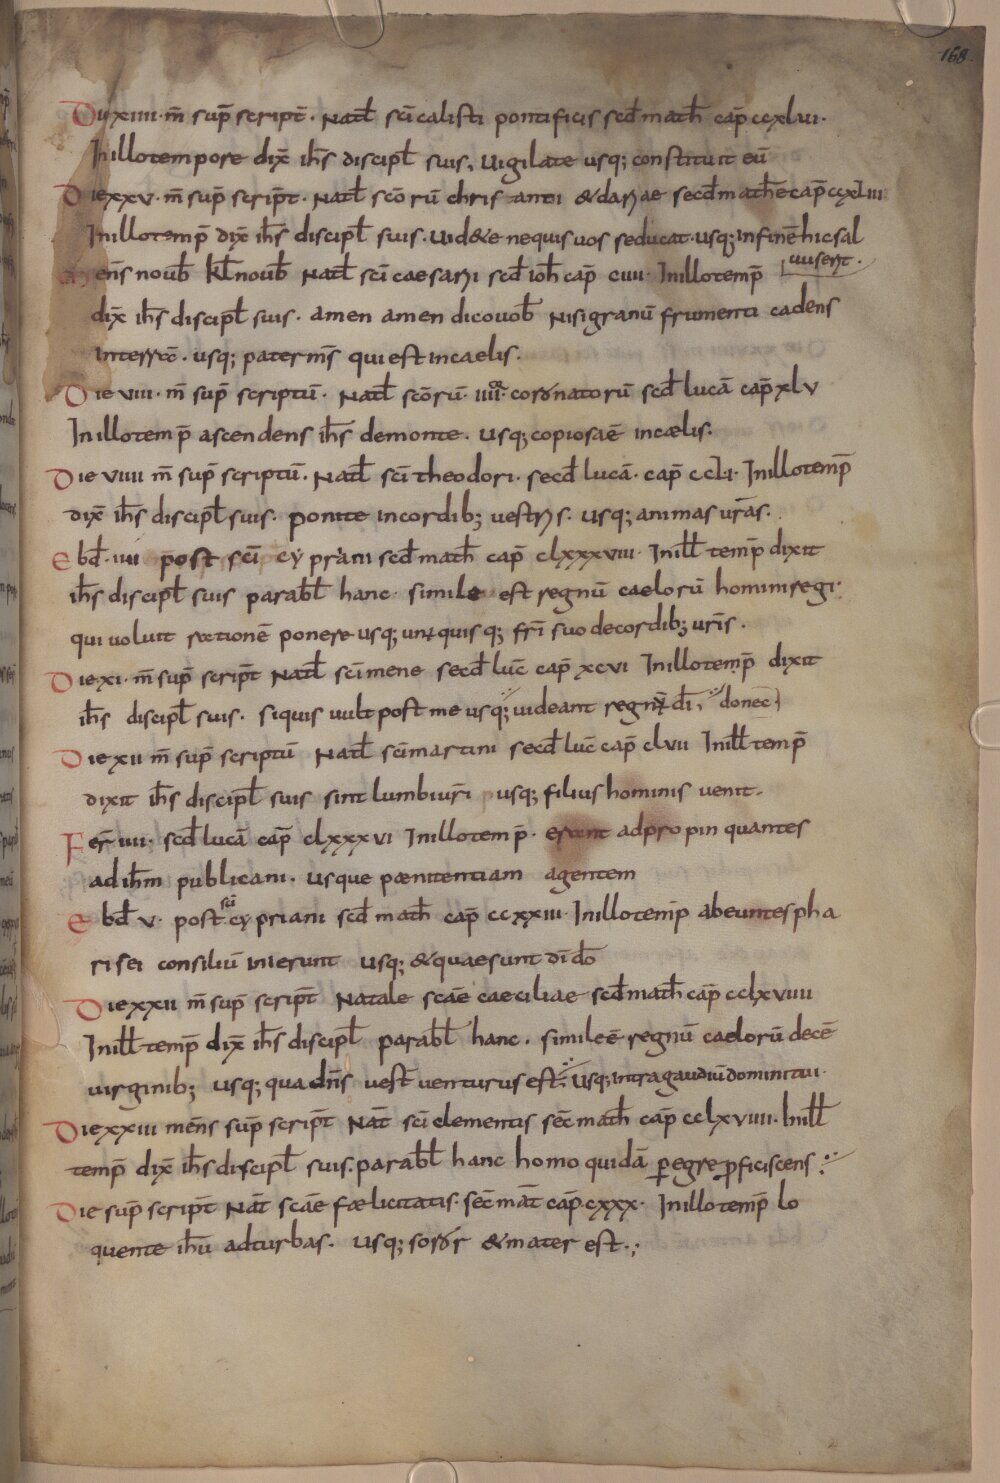 168
Die xiiii· m̄ sup̄ script̄· Natƚ sc̄i calisti pontificis scđ math̄ cap̄ ccxlvi·
In illo tempore dix̄ ih̄s discipƚ suis, Uigilate usq; constituit eū
Die xxv· m̄ sup̄ scrip̄t· Natƚ sc̄orū chrisanti & dariae secđ math̄e cap̄ ccxliii
In illo temp̄ dix̄ ih̄s discipƚ suis· Uid&e nequis uos seducat· usq; infinē hic sal
uus erit·
Mens̄ noub̄ kƚ noub̄ Natƚ sc̄i caesarii scđ ioh̄ cap̄ cuii· In illo temp̄
dix̄ ih̄s discipƚ suis· amen amen dico uob̄ Nisi granū frumenti cadens
in terrā· usq; pater m̄s qui est in caelis·
Die viii· m̄ sup̄ scriptū· Natƚ sc̄orū· iiiior· coronatorū scđ lucā cap̄ xlv
In illo temp̄ ascendens ih̄s de monte· usq; copiosa ē in cælis·
Die viiii m̄ sup̄ scriptū· Natƚ sc̄i theodori· secđ lucā· cap̄ ccli· In illo temp̄
dix̄ ih̄s discipƚ suis· ponite in cordib; uestris· usq; animas ur̄as·
Ebđ· iiii post sc̄i cypriani scđ math̄ cap̄ clxxxviii· Inill̄ temp̄ dixit
ih̄s discipƚ suis parabƚ hanc· simile est regnū caelorū homini regi·
qui uoluit rationē ponere usq; unusquisq; fr̄i suo de cordib; ur̄is·
Die xi· m̄ sup̄ scrip̄t Natƚ sc̄i mene secđ luc̄ cap̄ xcvi In illo temp̄ dixit
ih̄s discipƚ suis· siquis uult post me usq; uideant regnū di͞, donec
Die xii m̄ sup̄ scriptū Natƚ sc̄i martini secđ luc̄ cap̄ clvii Inill̄ temp̄
dixit ih̄s discipƚ suis sint lumbi ur̄i usq; filius hominis uenit·
Fer̄ iiii· scđ lucā cap̄ clxxxvi In illo temp̄· erant adpropinquantes
ad ih̄m publicani· usque pænitentiam agentem
Ebđ v· post sc̄i cypriani scđ math̄ cap̄ ccxxiii· In illo temp̄ abeuntes pha
risei consiliū inierunt usq; & quae sunt di͞ dō
Die xxii m̄ sup̄ scrip̄t Natale scāe caeciliae scđ math̄ cap̄ cclxviiii
Inill̄ temp̄ dix̄ ih̄s discipƚ parabƚ hanc· simile ē regnū caelorū decē
uirginib; usq; qua dn̄s uesƚ uenturus est· Usq; intra gaudiū domini tui·
Die xxiii mens̄ sup̄ scrip̄t Nat̄ sc̄i clementis sec̄ math̄ cap̄ cclxviiii· Inill̄
temp̄ dix̄ ih̄s discipƚ suis· parabƚ hanc homo quidā peregre proficiscens
Die sup̄ scrip̄t Nat̄ scāe fælicitatis· sec̄ mat̄ cap̄ cxxx· In illo temp̄ lo
quente ih̄u ad turbas· usq; soror & mater est·